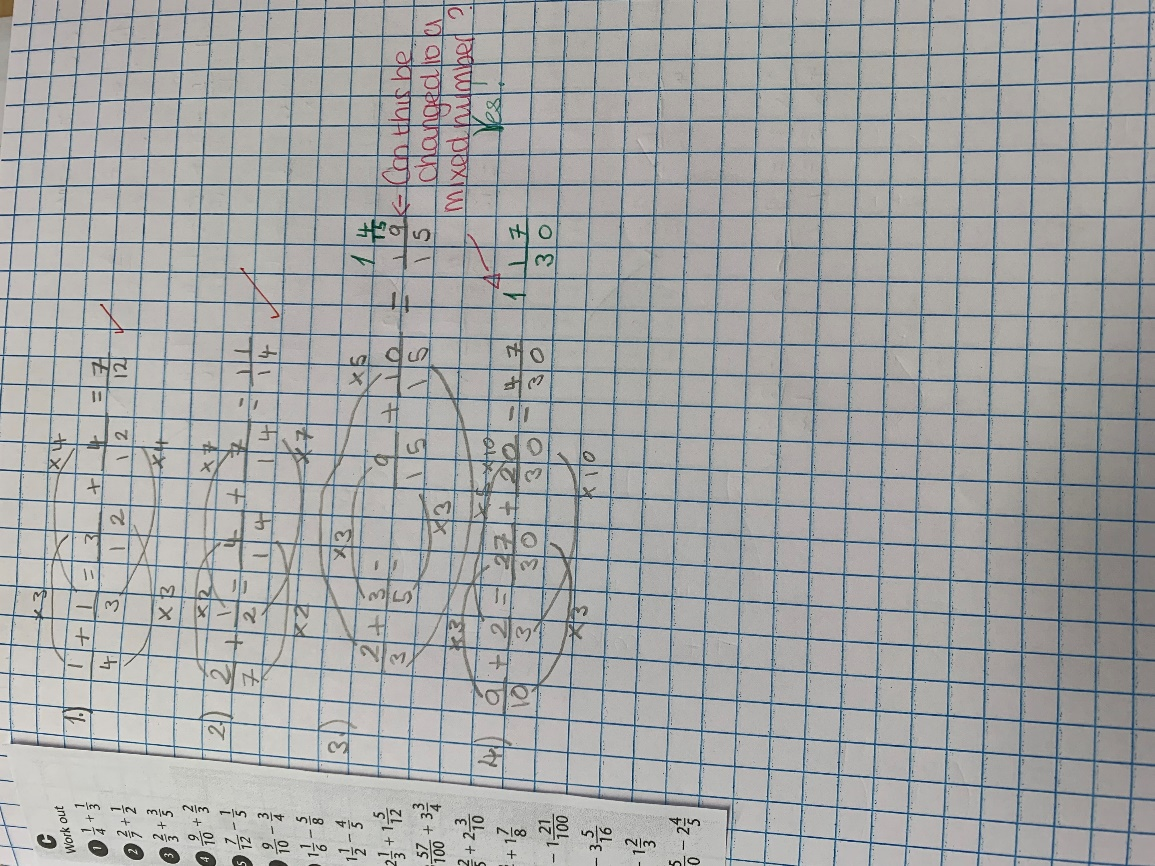 C
Work out
1 1/4 + 1/3
2 2/7 + 1/2
3 2/3 + 3/5
4 9/10 + 2/3
5 7/12 - 1/5
9/10 - 3/4
1 1/6 - 5/8
1 1/2 - 4/5
2 1/3 + 1 5/12
57/100 + 3 3/4
2/5 + 2 3/10
+ 1 7/8
- 1 21/100
- 3 5/16
- 1 2/3
5/10 - 2 4/5
1.) 1/4 + 1/3 = 3/12 + 4/12 = 7/12
x3 x4
x3 x4
2.) 2/7 + 1/2 = 4/14 + 7/14 = 11/14
x2 x7
x2 x7
3.) 2/3 + 3/5 = 9/15 + 10/15 = 19/15
x3 x5
x3
1 4/15
<- Can this be
changed to a
mixed number?
Yes.
4.) 9/10 + 2/3 = 27/30 + 20/30 = 47/30
x3 x10
x3 x10
1 17/30